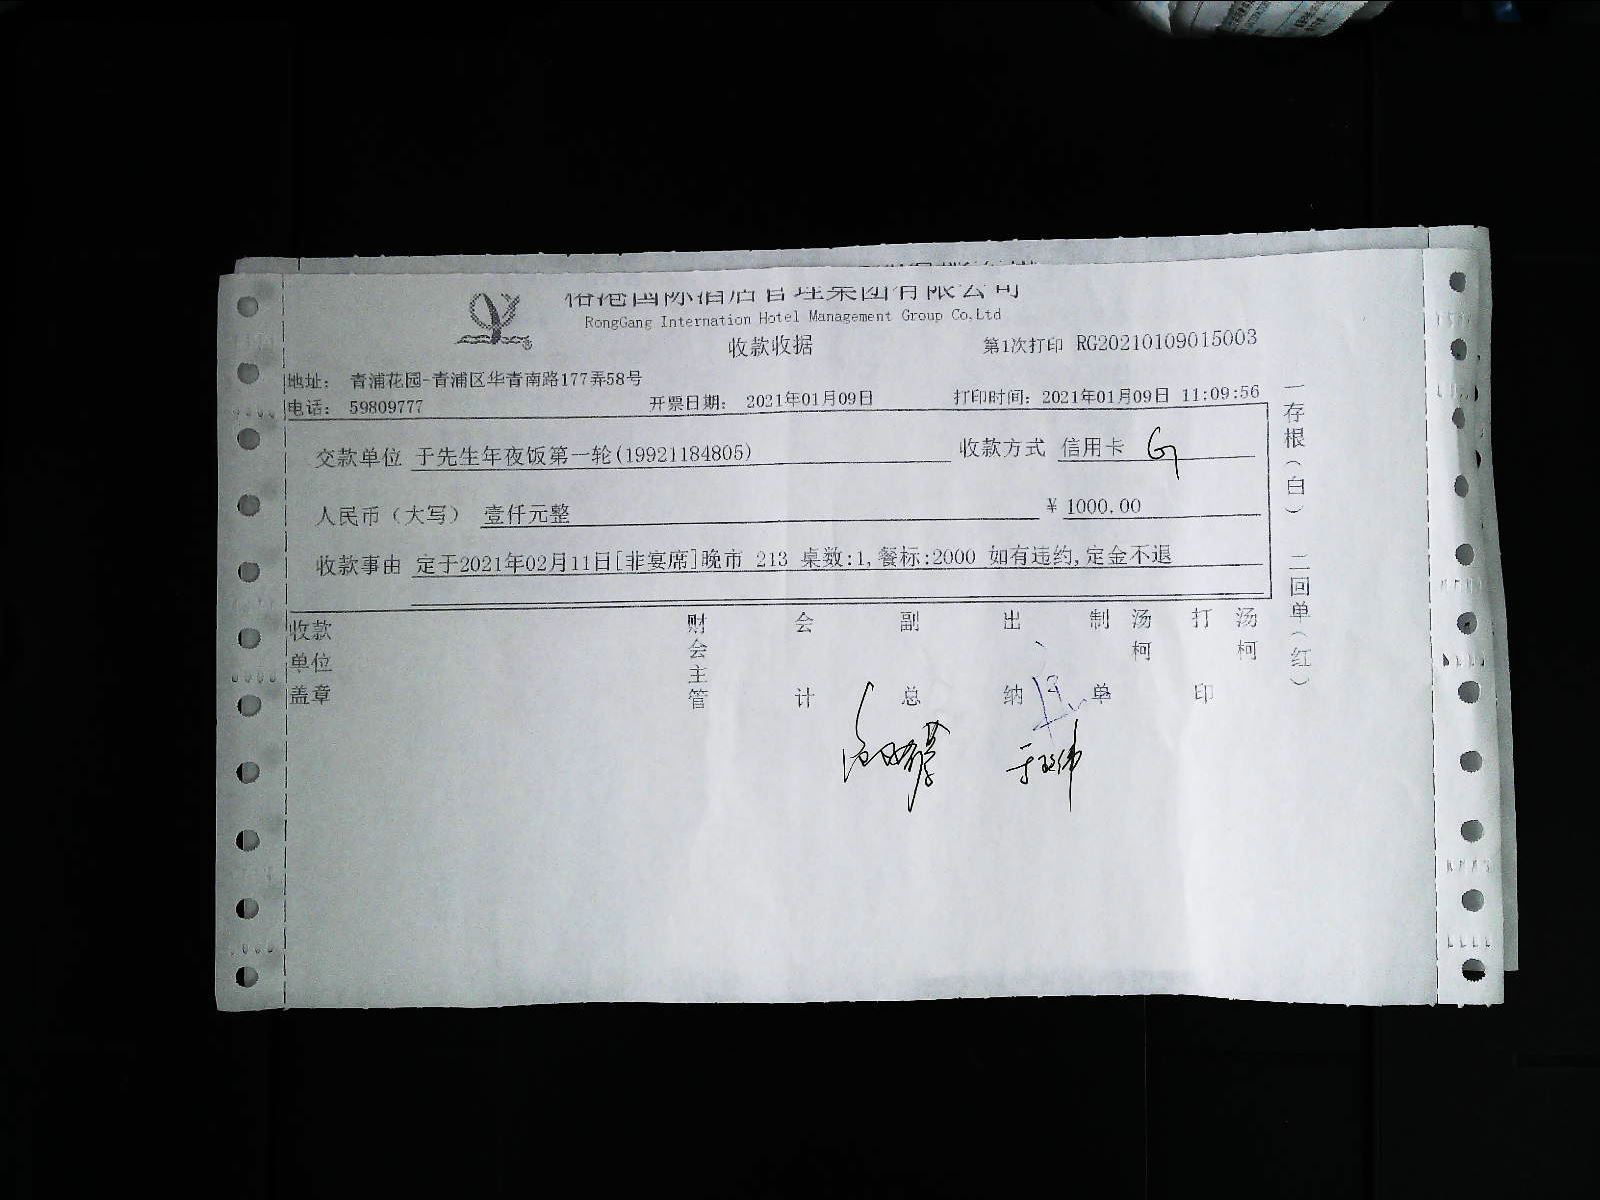 国际酒店管理集团有限公司
RongGang Internation Hotel Management Group Co.Ltd
收款收据
第1次打印 RG20210109015003
地址： 青浦花园-青浦区华青南路177弄58号
电话： 59809777
开票日期： 2021年01月09日
打印时间：2021年01月09日 11:09:56
交款单位 于先生年夜饭第一轮(19921184805)
收款方式 信用卡
人民币（大写） 壹仟元整
¥ 1000.00
收款事由 定于2021年02月11日[非宴席]晚市 213 桌数:1,餐标:2000 如有违约,定金不退
收款单位盖章
财会主管
会计
副总
出纳
制单 汤柯
打印 汤柯
一存根（白） 二回单（红）